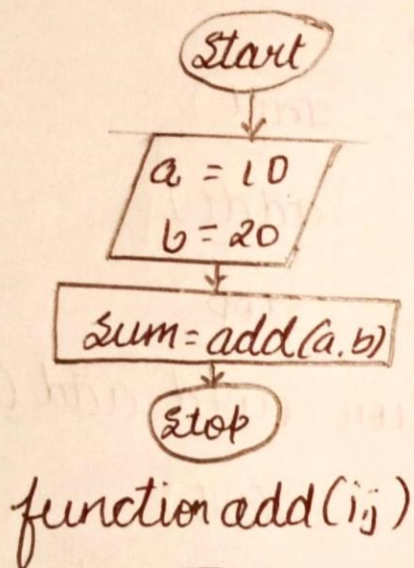 Start
a = 10
b = 20
sum = add(a.b)
Stop
function add(i,j)